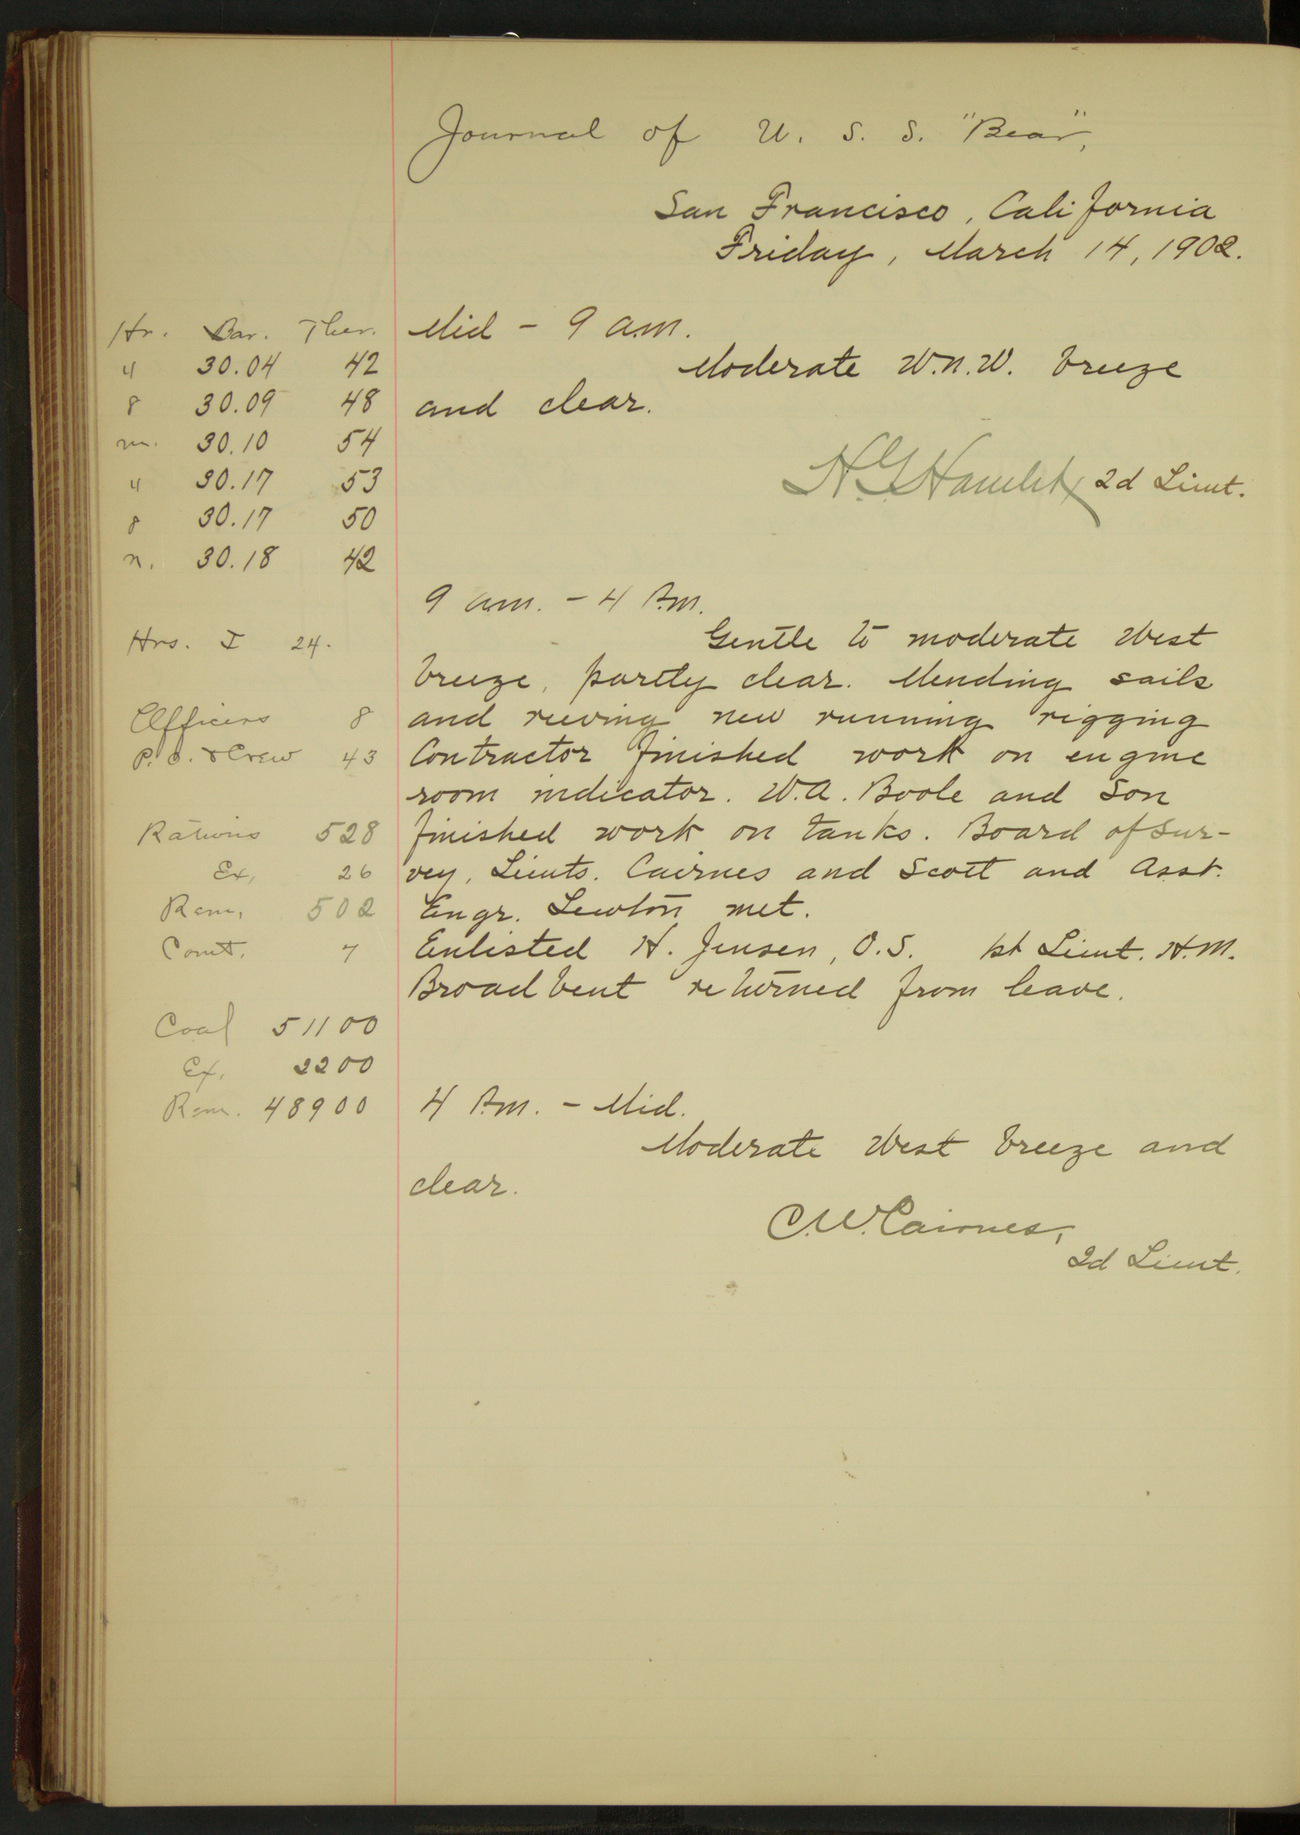 Journal of U. S. S. "Bear",
San Francisco, California
Friday, March 14, 1902.
Hr. Bar. Ther.
4 30.04 42
8 30.09 48
m. 30.10 54
4 30.17 53
8 30.17 50
n. 30.18 42
Hrs. I 24.
Officers 8
P.O. & Crew 43
Rations 528
Ex. 26
Rem. 502
Comt. 7
Coal 51100
Ex. 2200
Rem. 48900
Mid - 9 a.m.
Moderate W.N.W. breeze
and clear.
H.G. Hamlet, 2d Lieut.
9 am. - 4 P.m.
Gentle to moderate West
breeze, partly clear. Mending sails
and reeving new running rigging
Contractor finished work on engine
room indicator. W.A. Boole and Son
finished work on tanks. Board of Sur-
vey, Lieuts. Cairnes and Scott and Asst.
Engr. Lewton met.
Enlisted H. Jensen, O.S. 1st Lieut. H.M.
Broadbent returned from leave.
4 P.m. - Mid.
Moderate West breeze and
clear.
C.W. Cairnes,
2d Lieut.